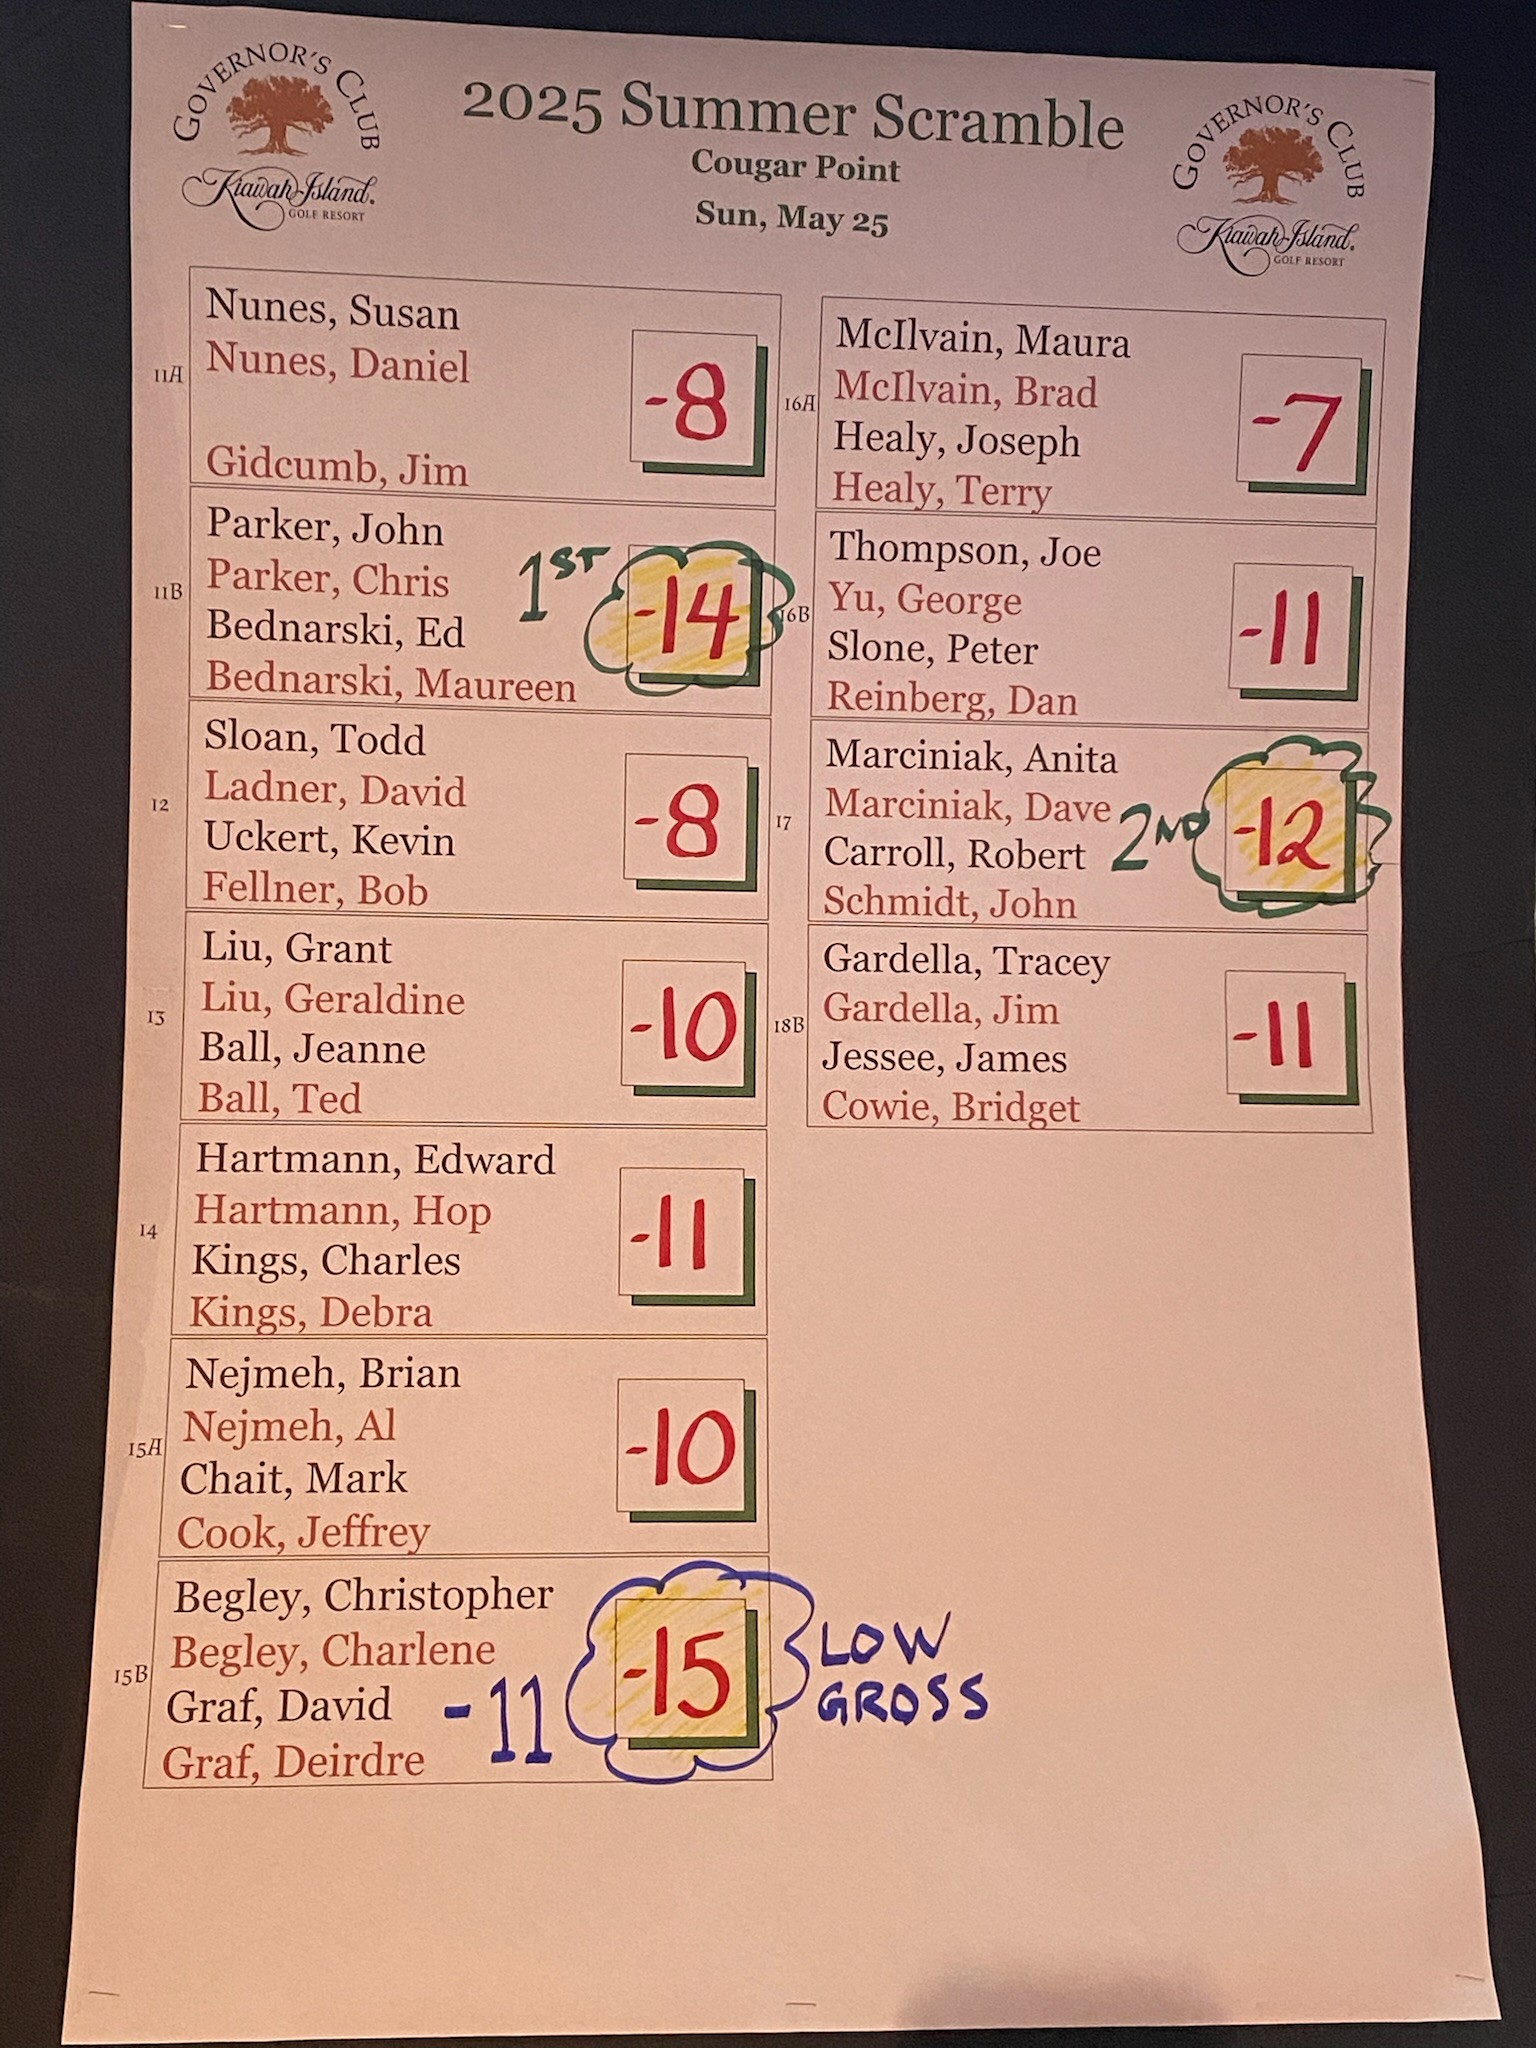 GOVERNOR'S CLUB
Kiawah Island.
GOLF RESORT
2025 Summer Scramble
Cougar Point
Sun, May 25
GOVERNOR'S CLUB
Kiawah Island.
GOLF RESORT
11A
Nunes, Susan
Nunes, Daniel
Gidcumb, Jim
-8
11B
Parker, John
Parker, Chris
Bednarski, Ed
Bednarski, Maureen
1ST
-14
12
Sloan, Todd
Ladner, David
Uckert, Kevin
Fellner, Bob
-8
13
Liu, Grant
Liu, Geraldine
Ball, Jeanne
Ball, Ted
-10
14
Hartmann, Edward
Hartmann, Hop
Kings, Charles
Kings, Debra
-11
15A
Nejmeh, Brian
Nejmeh, Al
Chait, Mark
Cook, Jeffrey
-10
15B
Begley, Christopher
Begley, Charlene
Graf, David
Graf, Deirdre
-11
-15
LOW
GROSS
16A
McIlvain, Maura
McIlvain, Brad
Healy, Joseph
Healy, Terry
-7
16B
Thompson, Joe
Yu, George
Slone, Peter
Reinberg, Dan
-11
17
Marciniak, Anita
Marciniak, Dave
Carroll, Robert
Schmidt, John
2ND
-12
18B
Gardella, Tracey
Gardella, Jim
Jessee, James
Cowie, Bridget
-11